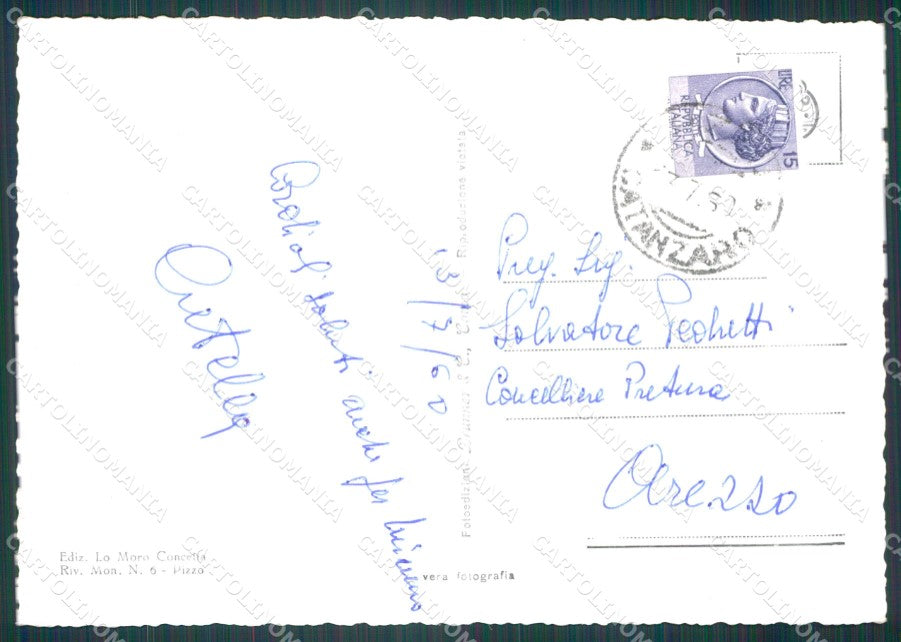 Cordiali saluti anche per
13/7/60
Preg. Sig.
Salvatore
Cancelliere Pretura
Arezzo
LIRE 15
REPVBBLICA
ITALIANA
CATANZARO
Ediz. Lo Moro Concetta
Riv. Mon. N. 6 - Pizzo
Riproduzione vietata
vera fotografia
CARTOLINOMANIA